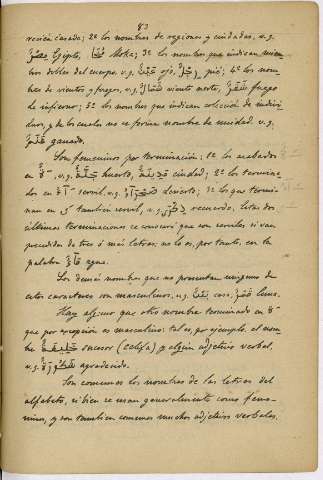 83
recién casada; 2º los nombres de regiones y ciudades, v.g.
مِصْرُ Egipto, مُخَا Moka; 3º los nombres que indican miem
bros dobles del cuerpo, v.g. عَيْنٌ ojo, رِجْلٌ pié; 4º los nom
bres de vientos y fuegos, v.g. شَمَالٌ viento norte, سَقَرُ fuego
de infierno; 5º los nombres que indican colección de indivi
duos, y de los cuales no se forma nombre de unidad v.g.
غَنَمٌ ganado.
Son femeninos por terminación: 1º los acabados
en ةٌ, v.g. جَنَّةٌ huerto, مَدِينَةٌ ciudad; 2º los termina
dos en آءُ servil, v.g. صَحْرَآءُ desierto; 3º los que termi
nan en ى también servil, v.g. ذِكْرَى recuerdo. Estas dos
últimas terminaciones se conocerá que son serviles si van
precedidas de tres ó más letras; no lo es, por tanto, en la
palabra مَآءٌ agua.
Los demás nombres que no presentan ninguno de
estos caracteres son masculinos, v.g. بَيْتٌ casa, قَمَرٌ luna.
Hay alguno que otro nombre terminado en ةٌ
que por excepción es masculino: tal es, por ejemplo, el nom
bre خَلِيفَةٌ sucesor (califa) y algún adjetivo verbal,
v.g. agradecido.
Son comunes los nombres de las letras del
alfabeto, si bien se usan generalmente como feme
ninos, y son también comunes muchos adjetivos verbales.